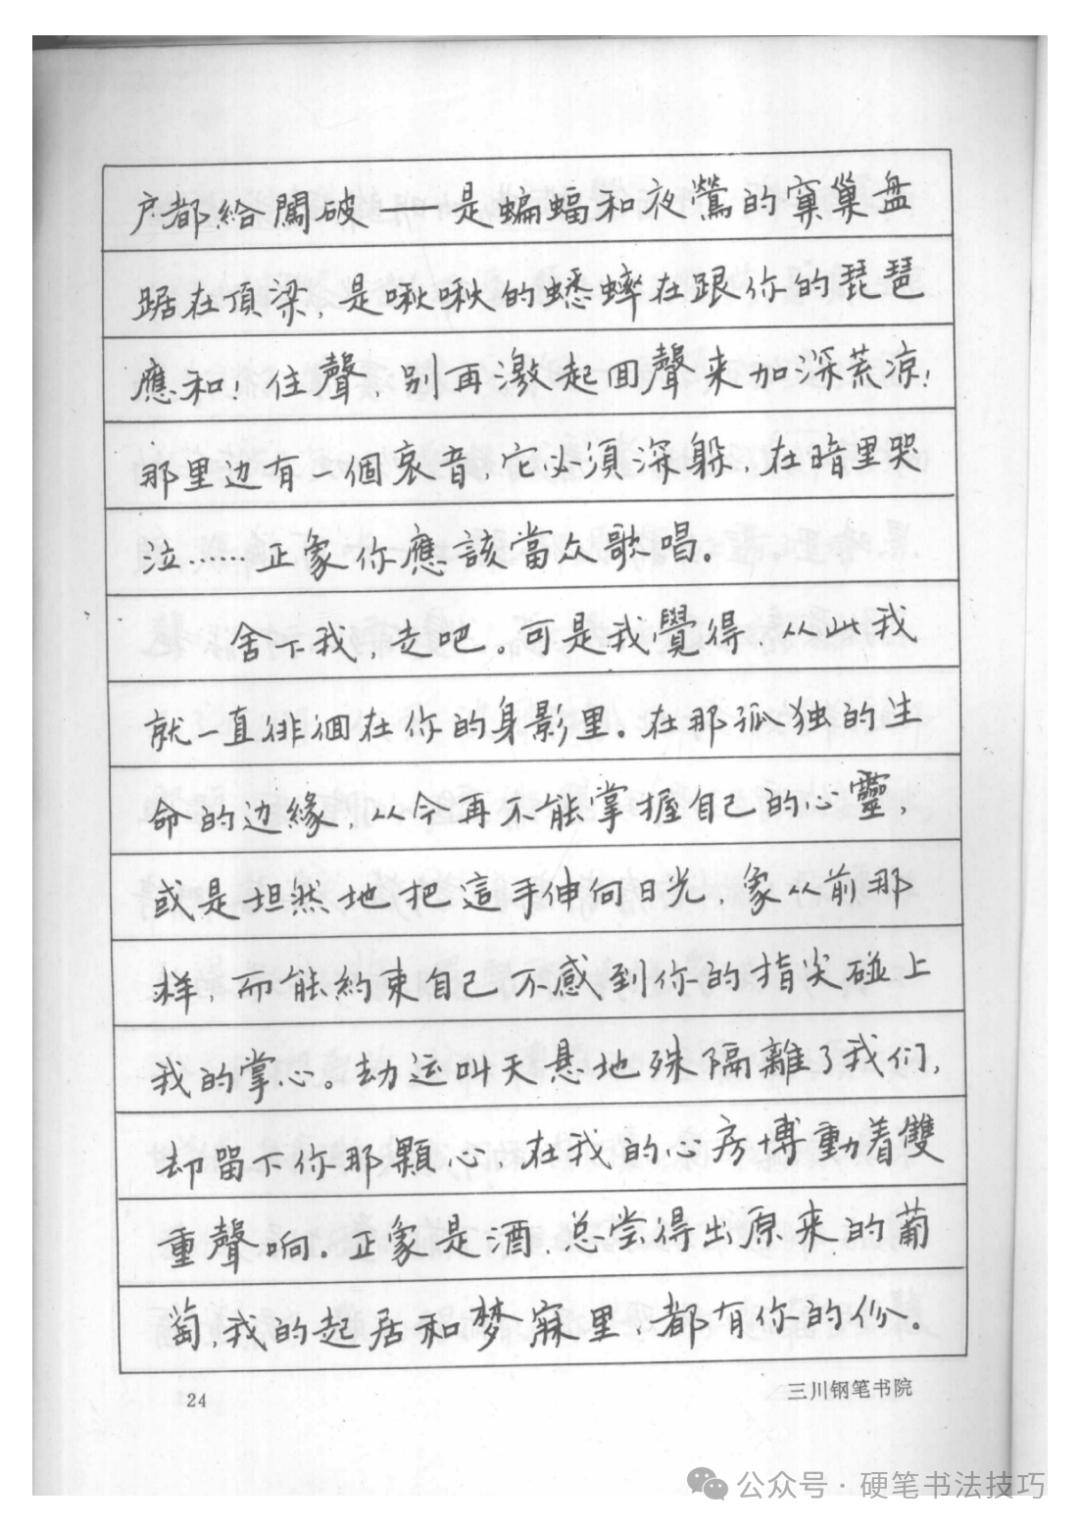 户都給闖破——是蝙蝠和夜鶯的窠巢盘
踞在頂梁，是啾啾的蟋蟀在跟你的琵琶
應和！住聲，别再激起回聲来加深荒凉！
那里边有一個哀音，它必須深躲，在暗里哭
泣……正象你應該當众歌唱。
舍下我，走吧。可是我覺得，从此我
就一直徘徊在你的身影里。在那孤独的生
命的边緣，从今再不能掌握自己的心靈，
或是坦然地把這手伸向日光，象从前那
样，而能約束自己不感到你的指尖碰上
我的掌心。劫运叫天悬地殊隔離了我们，
却留下你那顆心，在我的心房搏動着雙
重聲响。正象是酒，总尝得出原来的葡
萄，我的起居和梦寐里，都有你的份。
24
三川钢笔书院
公众号·硬笔书法技巧